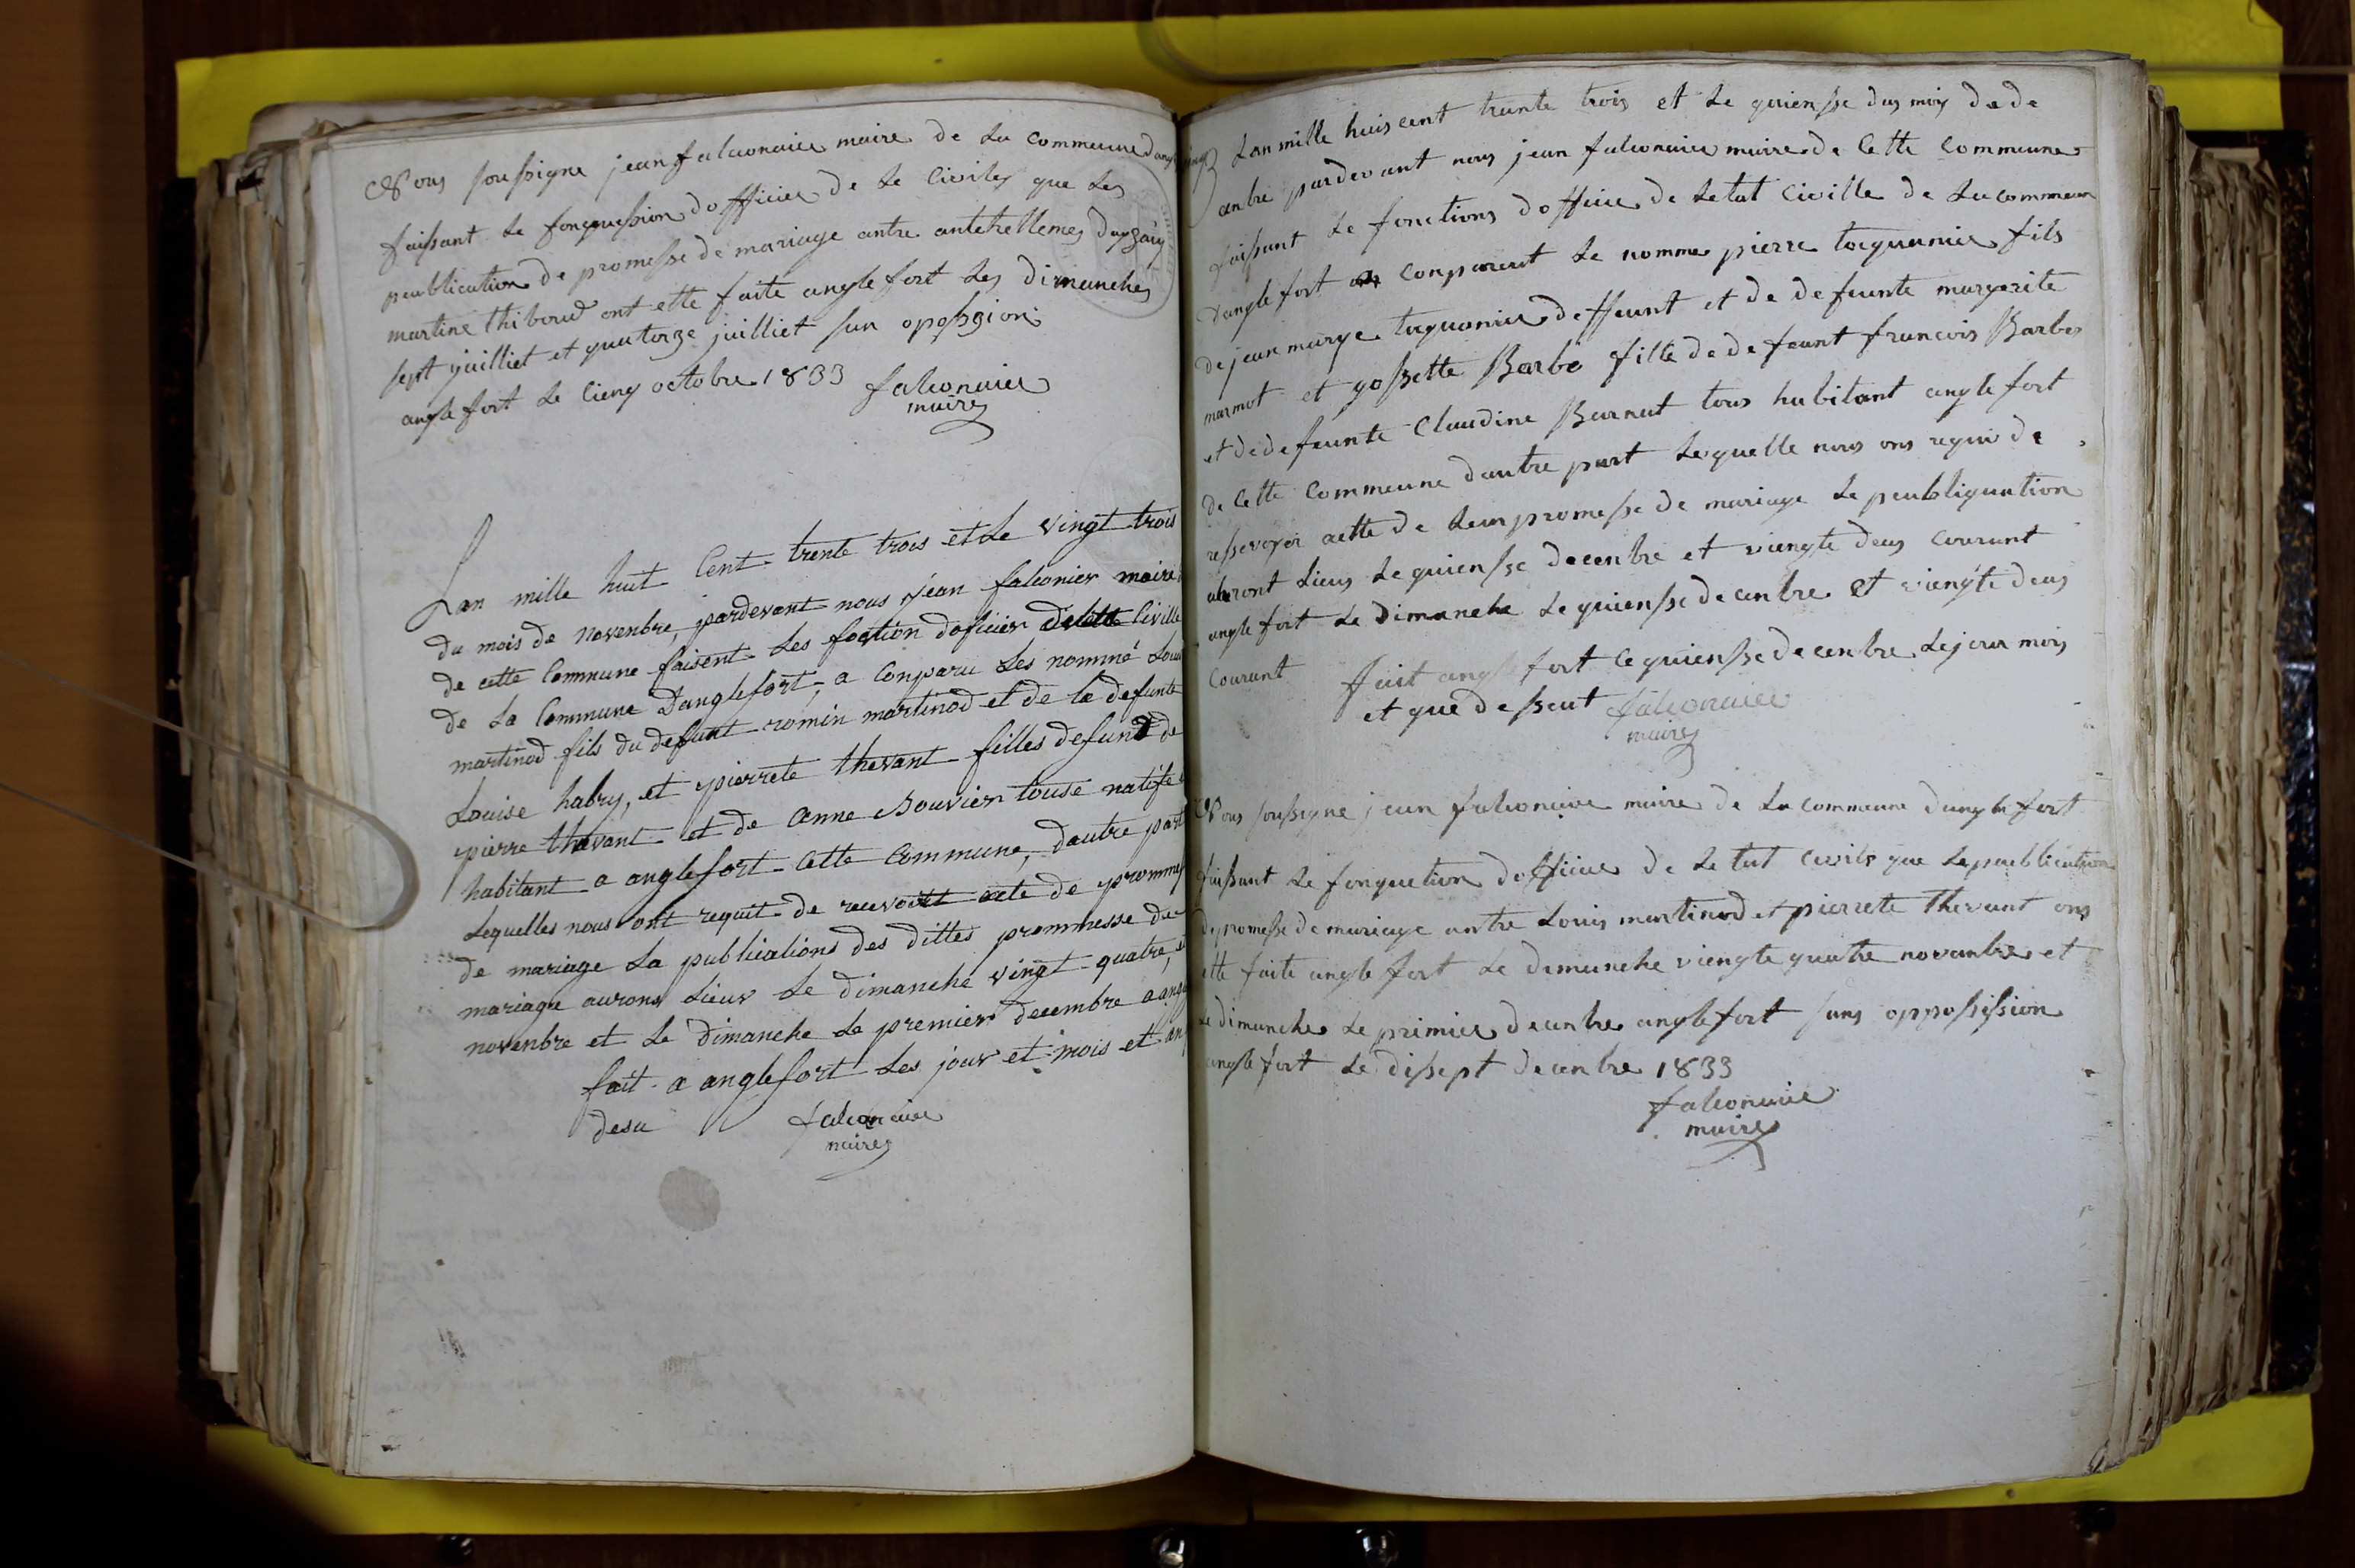 Nous soussigne jean falconnier maire de la commeune dangle
faissant le fonquession dofficier de le civiles que les
peublication de promesse de mariage antre antehellemes
martine thiboud ont ette faite anglefort les dimanches
sept juilliet et quatorze juilliet san opossgion
anglefort le cienq octobre 1833 falconnier
maire
Lan mille huit Cent trente trois et Le vingt trois
du mois de novenbre, pardevant nous jéan falconier maire
de cette Commune faisent Les foction doficier Civille
de La Commune Danglefort, a Conparu Les nommé Loui
martinod fils du defunt romin martinod et de la defunte
Louise habry, et pierrete thevant filles defunt de
pierre thevant et de anne Bouvier touse natife
habitant a anglefort Cette Commune, dautre part
Lequelles nous ont requit de recevoirt acte de promme
de mariage La publications des dittes prommesse de
mariage aurons Lieux Le dimanche vingt quatre, et
novenbre et Le dimanche Le premier decembre a ang
fait a anglefort Les jour et mois et an
desu falconnier
maire
Lan mille huis cent trante trois et le quiensse dus mois de de
cenbre pardevant nous jean falconnier maire de Cette Commeune
faissant le fonctions dofficie de letat Civille de La commeun
danglefort conparent le nomme pierre tocquanier fils
de jean marye toquanier deffeunt et de defeunte margerite
marmot et gossette Barbe fille de defeunt francois Barbe
et de defeunte Claudine Barnut tous habitant anglefort
de Cette Commeune dautre part lequelle nous ons requi de
ressevoyer aette de leur promesse de mariage le peubliquation
aleront Lieus le quiensse decenbre et viengte deus Courant
anglefort le Dimanche le quiensse decenbre et viengte deus
Courant fait anglefort le quiensse decenbre le jour mois
et que desseut falconnier
maire
Nous soussigne jean falconnier maire de la commeune danglefort
faissant le fonquetion dofficier de letat civile que le peublication
de promesse de mariage antre Louis martinod et pierrete thevant ons
ette faite anglefort le dimanche viengte quatre novanbre et
le dimanche le primier decenbre anglefort sans oppossission
anglefort le dissept decenbre 1833
falconnier
maire